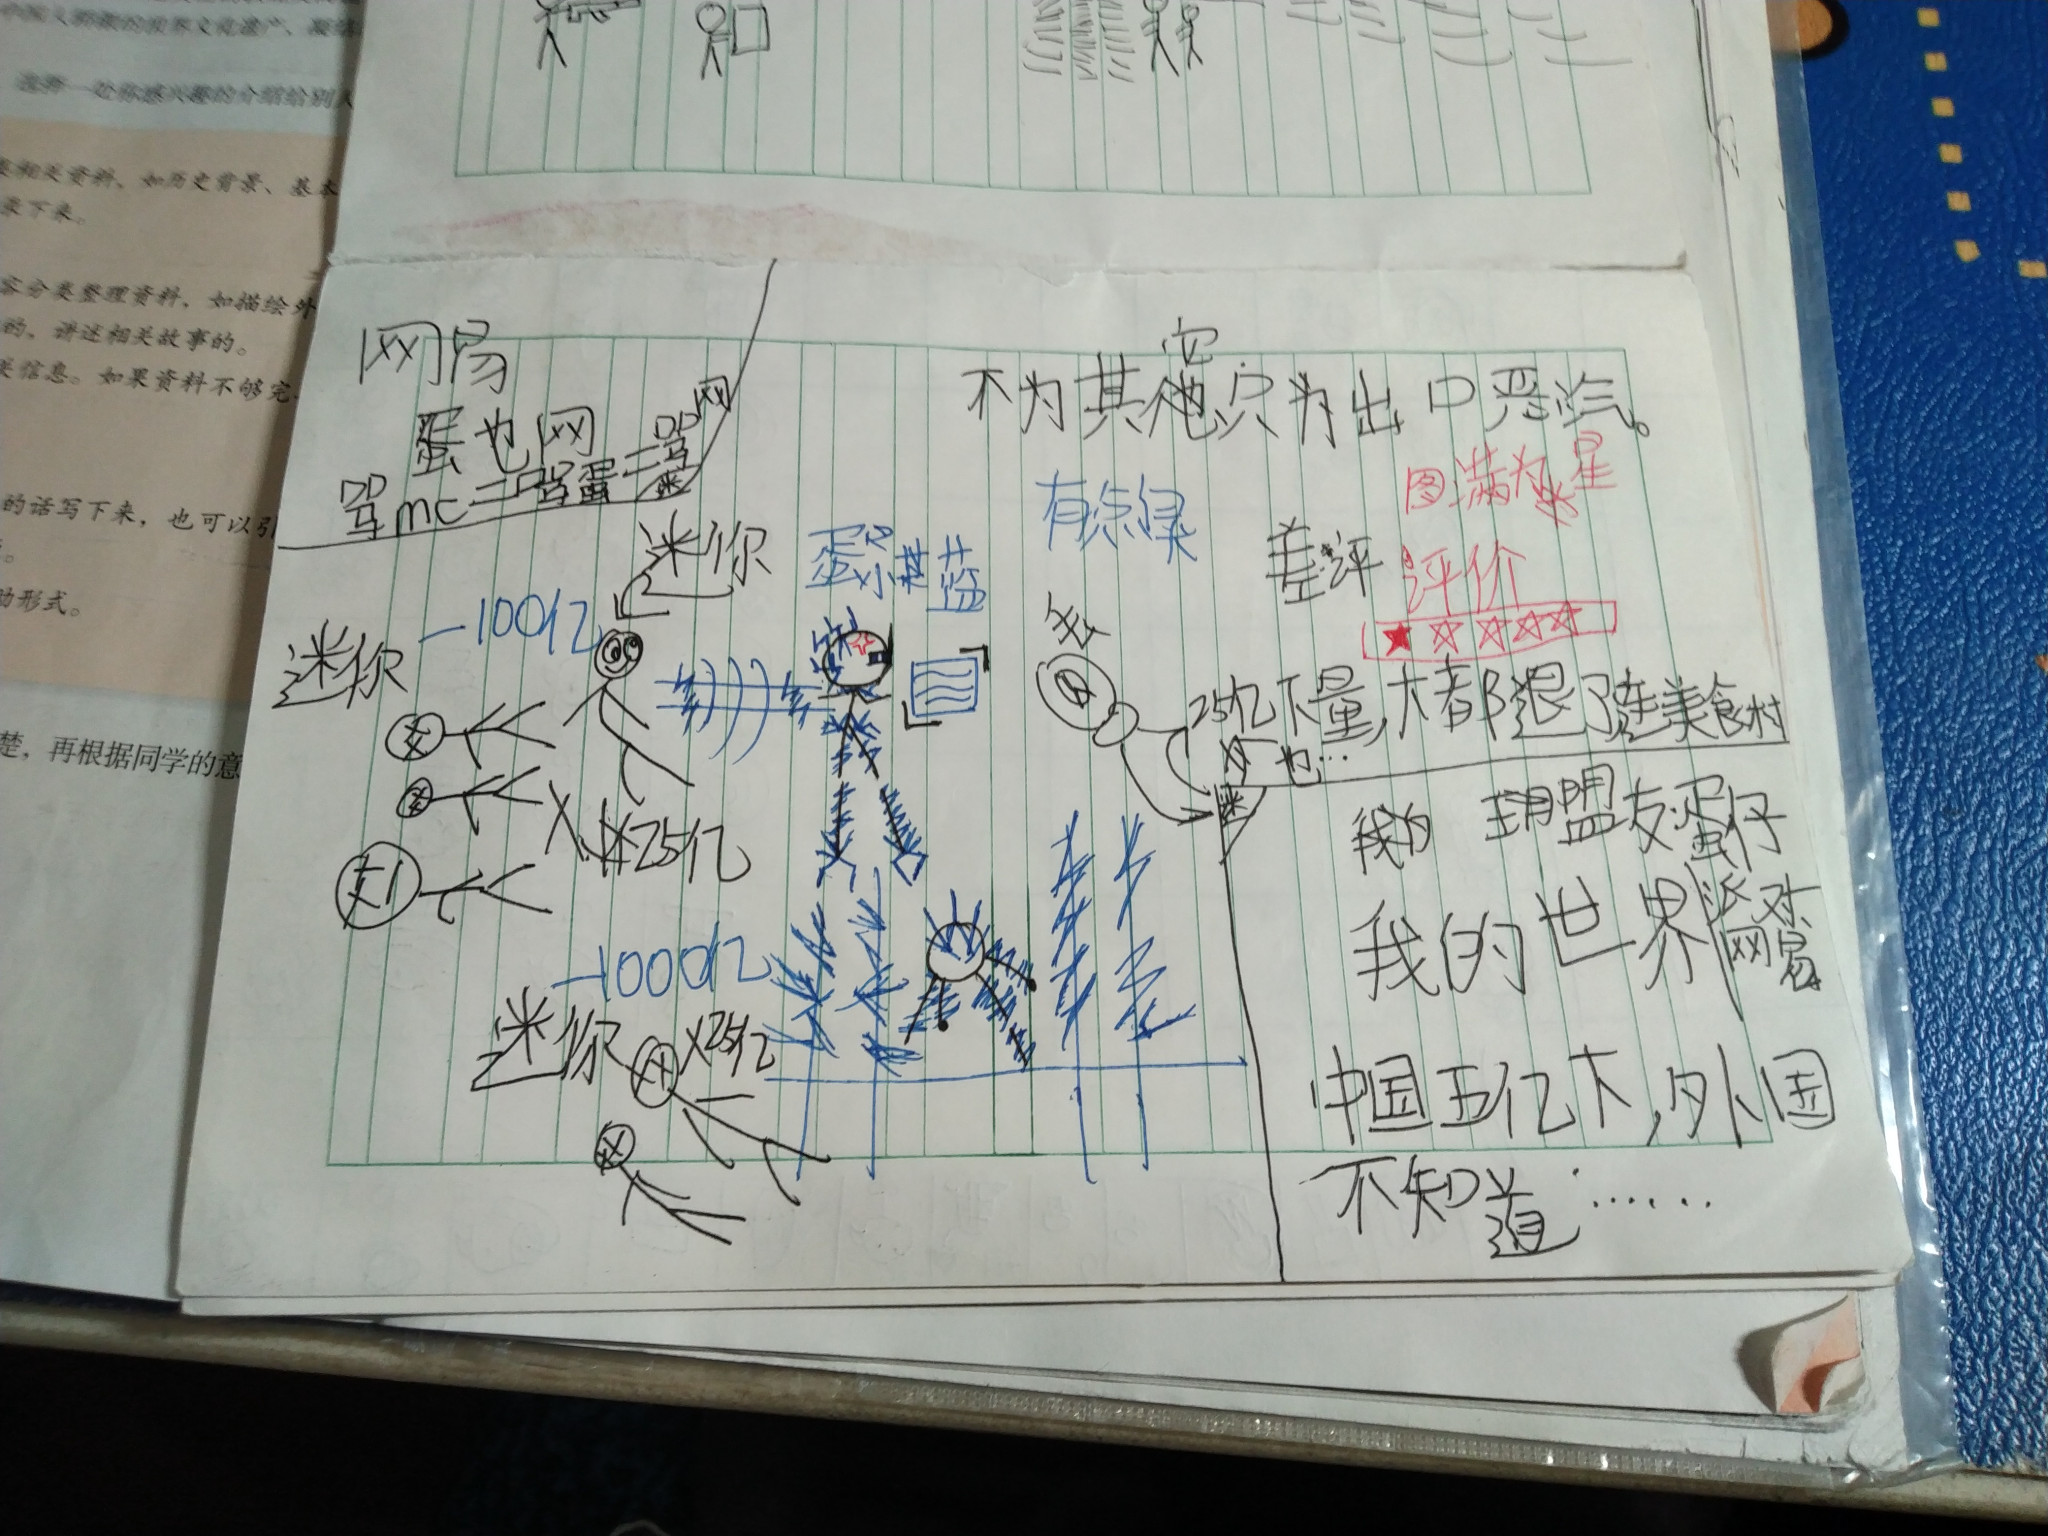 中国人群救的世界文化遗产,凝结
选择一处你感兴趣的介绍给别人
相关资料,如历史背景、基本
录下来。
容分类整理资料,如描绘外
的,讲述相关故事的。
关信息。如果资料不够完
的话写下来,也可以引
助形式。
楚,再根据同学的意
网易
蛋也网
骂mc=骂蛋=骂迷
网
不为其他只为出口恶气。
它
有点绿
差评
评价
迷你
蛋
蓝
-100亿
迷你
25亿下量,大都退了连美食村
也…
X25亿
我的 盟友蛋仔
派对
我的世界
网易
-1000亿
迷你
X25亿
中国五亿下,外国
不知道……